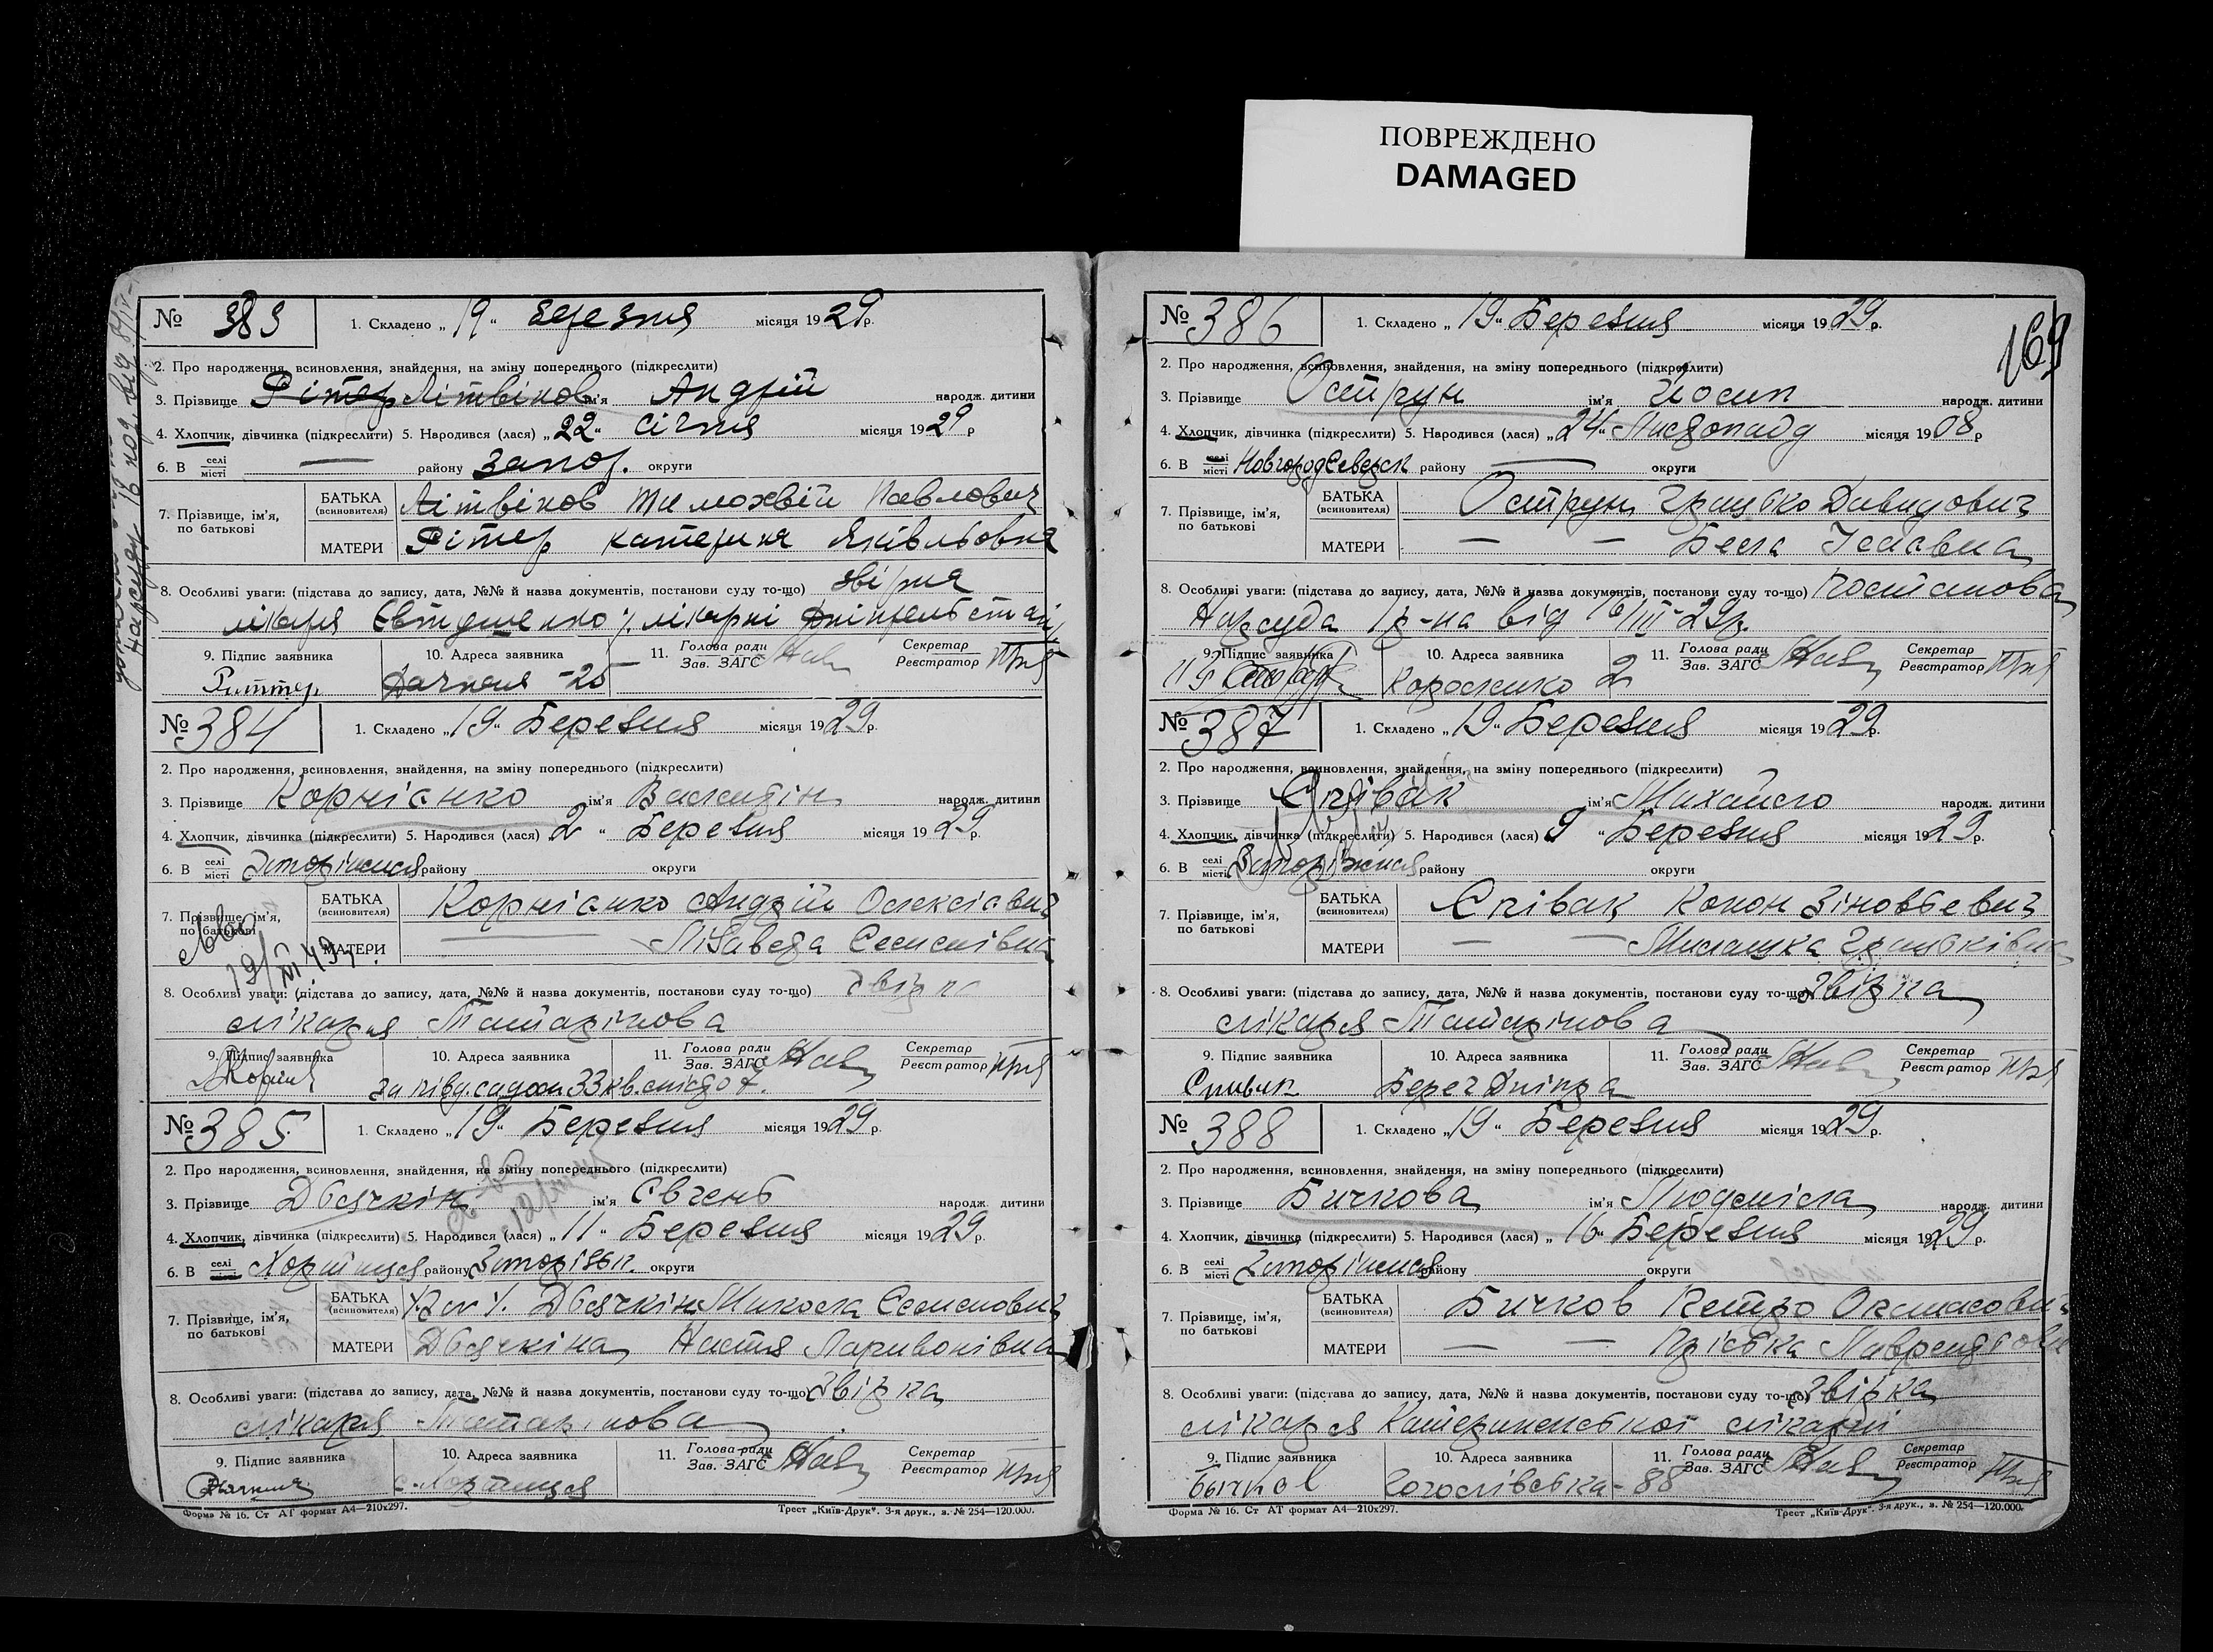 ПОВРЕЖДЕНО
DAMAGED
№ 383 1. Складено „19“ Березня місяця 1929р.
2. Про народження, всиновлення, знайдення, на зміну попереднього (підкреслити)
3. Прізвище Рітер Літвінов ім'я Андрій народж. дитини
4. Хлопчик, дівчинка (підкреслити) 5. Народився (лася) „22“ Січня місяця 1929 р
6. В селі місті — району Запор. округи
7. Прізвище, ім'я, по батькові
БАТЬКА (всиновителя) Літвінов Тимохвій Павлович
МАТЕРИ Рітер Катерина Яківльовна
8. Особливі уваги: (підстава до запису, дата, №№ й назва документів, постанови суду то-що) звірка
лікаря Євтушенко лікарні
9. Підпис заявника Риттер 10. Адреса заявника Дачная - 25 11. Голова ради Зав. ЗАГС Секретар Реєстратор
№ 384 1. Складено „19“ Березня місяця 1929р.
2. Про народження, всиновлення, знайдення, на зміну попереднього (підкреслити)
3. Прізвище Корнієнко ім'я Валентін народж. дитини
4. Хлопчик, дівчинка (підкреслити) 5. Народився (лася) 2 “ Березня місяця 1929р.
6. В селі місті Запоріжжя району округи
7. Прізвище, ім'я, по батькові
БАТЬКА (всиновителя) Корнієнко Андрій Олексієвич
МАТЕРИ — Лізаведа Семенівна
8. Особливі уваги: (підстава до запису, дата, №№ й назва документів, постанови суду то-що) Звірка
лікаря Татарінова
9. Підпис заявника 10. Адреса заявника 11. Голова ради Зав. ЗАГС Секретар Реєстратор
№ 385 1. Складено „19“ Березня місяця 1929р.
2. Про народження, всиновлення, знайдення, на зміну попереднього (підкреслити)
3. Прізвище Дьячкін ім'я Євгень народж. дитини
4. Хлопчик, дівчинка (підкреслити) 5. Народився (лася) „11“ Березня місяця 1929р.
6. В селі місті Хортиця району Запорізьк. округи
7. Прізвище, ім'я, по батькові
БАТЬКА (всиновителя) Дьячкін Микола Семенович
МАТЕРИ Дьячкіна Настя Ларивонівна
8. Особливі уваги: (підстава до запису, дата, №№ й назва документів, постанови суду то-що) Звірка
лікаря Татарінова
9. Підпис заявника 10. Адреса заявника с. Хортиця 11. Голова ради Зав. ЗАГС Секретар Реєстратор
Форма № 16. Ст АТ формат А4—210х297. Трест „Київ-Друк“. 3-я друк., з. № 254—120.000.
169
№ 386 1. Складено „19“ Березня місяця 1929р.
2. Про народження, всиновлення, знайдення, на зміну попереднього (підкреслити)
3. Прізвище Острун ім'я Йосип народж. дитини
4. Хлопчик, дівчинка (підкреслити) 5. Народився (лася) „24“ Листопада місяця 1908р
6. В селі місті Новгород Северск району — округи
7. Прізвище, ім'я, по батькові
БАТЬКА (всиновителя) Острун Грицько Давидович
МАТЕРИ — — Бела Ісаавна
8. Особливі уваги: (підстава до запису, дата, №№ й назва документів, постанови суду то-що) Постанова
Нарсуда 1 р-на від 16/III-29р.
9. Підпис заявника 10. Адреса заявника 2 11. Голова ради Зав. ЗАГС Секретар Реєстратор
№ 387 1. Складено „19“ Березня місяця 1929р.
2. Про народження, всиновлення, знайдення, на зміну попереднього (підкреслити)
3. Прізвище Співак ім'я Михайло народж. дитини
4. Хлопчик, дівчинка (підкреслити) 5. Народився (лася) 9 “ Березня місяця 1929р.
6. В селі місті Запоріжжя району округи
7. Прізвище, ім'я, по батькові
БАТЬКА (всиновителя) Співак Конон Зіновьевич
МАТЕРИ — — Милашка Грицьківна
8. Особливі уваги: (підстава до запису, дата, №№ й назва документів, постанови суду то-що) Звірка
лікаря Татарінова
9. Підпис заявника Спивак 10. Адреса заявника Берег Дніпра 11. Голова ради Зав. ЗАГС Секретар Реєстратор
№ 388 1. Складено „19“ Березня місяця 1929р.
2. Про народження, всиновлення, знайдення, на зміну попереднього (підкреслити)
3. Прізвище Бичкова ім'я Людміла народж. дитини
4. Хлопчик, дівчинка (підкреслити) 5. Народився (лася) „16“ Березня місяця 1929р.
6. В селі місті Запоріжжя району округи
7. Прізвище, ім'я, по батькові
БАТЬКА (всиновителя) Бичков Петро
МАТЕРИ — —
8. Особливі уваги: (підстава до запису, дата, №№ й назва документів, постанови суду то-що) Звірка
лікаря Катериненської лікарні
9. Підпис заявника Бычков 10. Адреса заявника Гоголівська - 88 11. Голова ради Зав. ЗАГС Секретар Реєстратор
Форма № 16. Ст АТ формат А4—210х297. Трест „Київ-Друк“. 3-я друк., з. № 254—120.000.